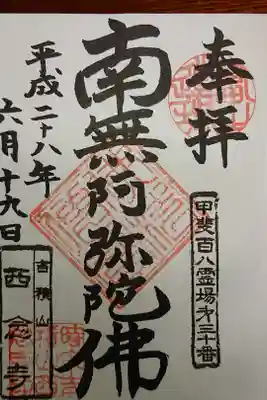 奉拝
甲斐百八霊場第三十番
南無阿弥陀佛
平成二十八年
六月十九日
吉積山
西念寺